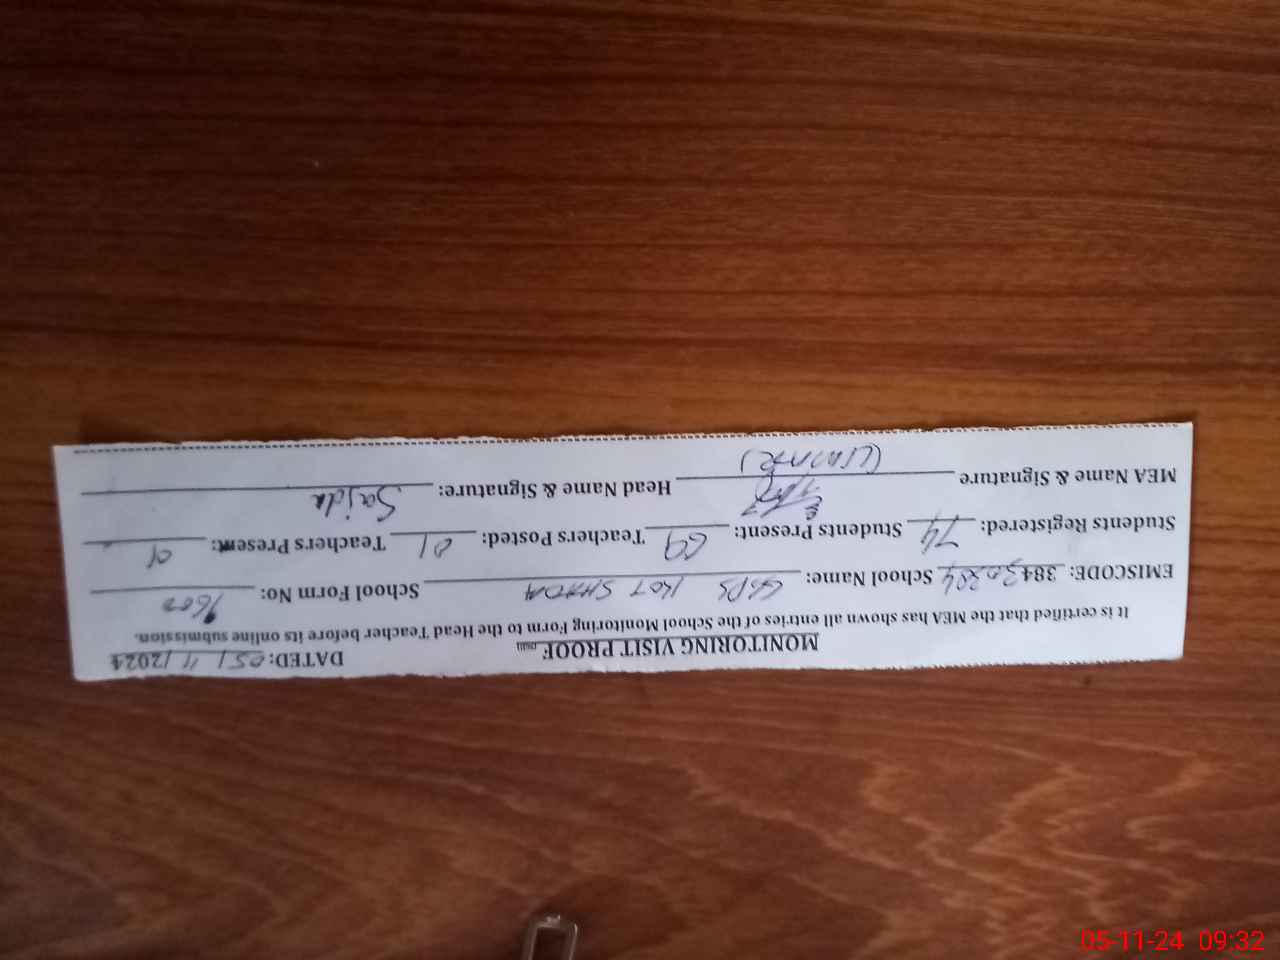 MONITORING VISIT PROOF DATED: 05/11/2024
It is certified that the MEA has shown all entries of the School Monitoring Form to the Head Teacher before its online submission.
EMISCODE: 384 School Name: GGPS KOT SHADA School Form No:
Students Registered: 74 Students Present: 69 Teachers Posted: 01 Teachers Present: 01
MEA Name & Signature Head Name & Signature: Sajda
05-11-24 09:32